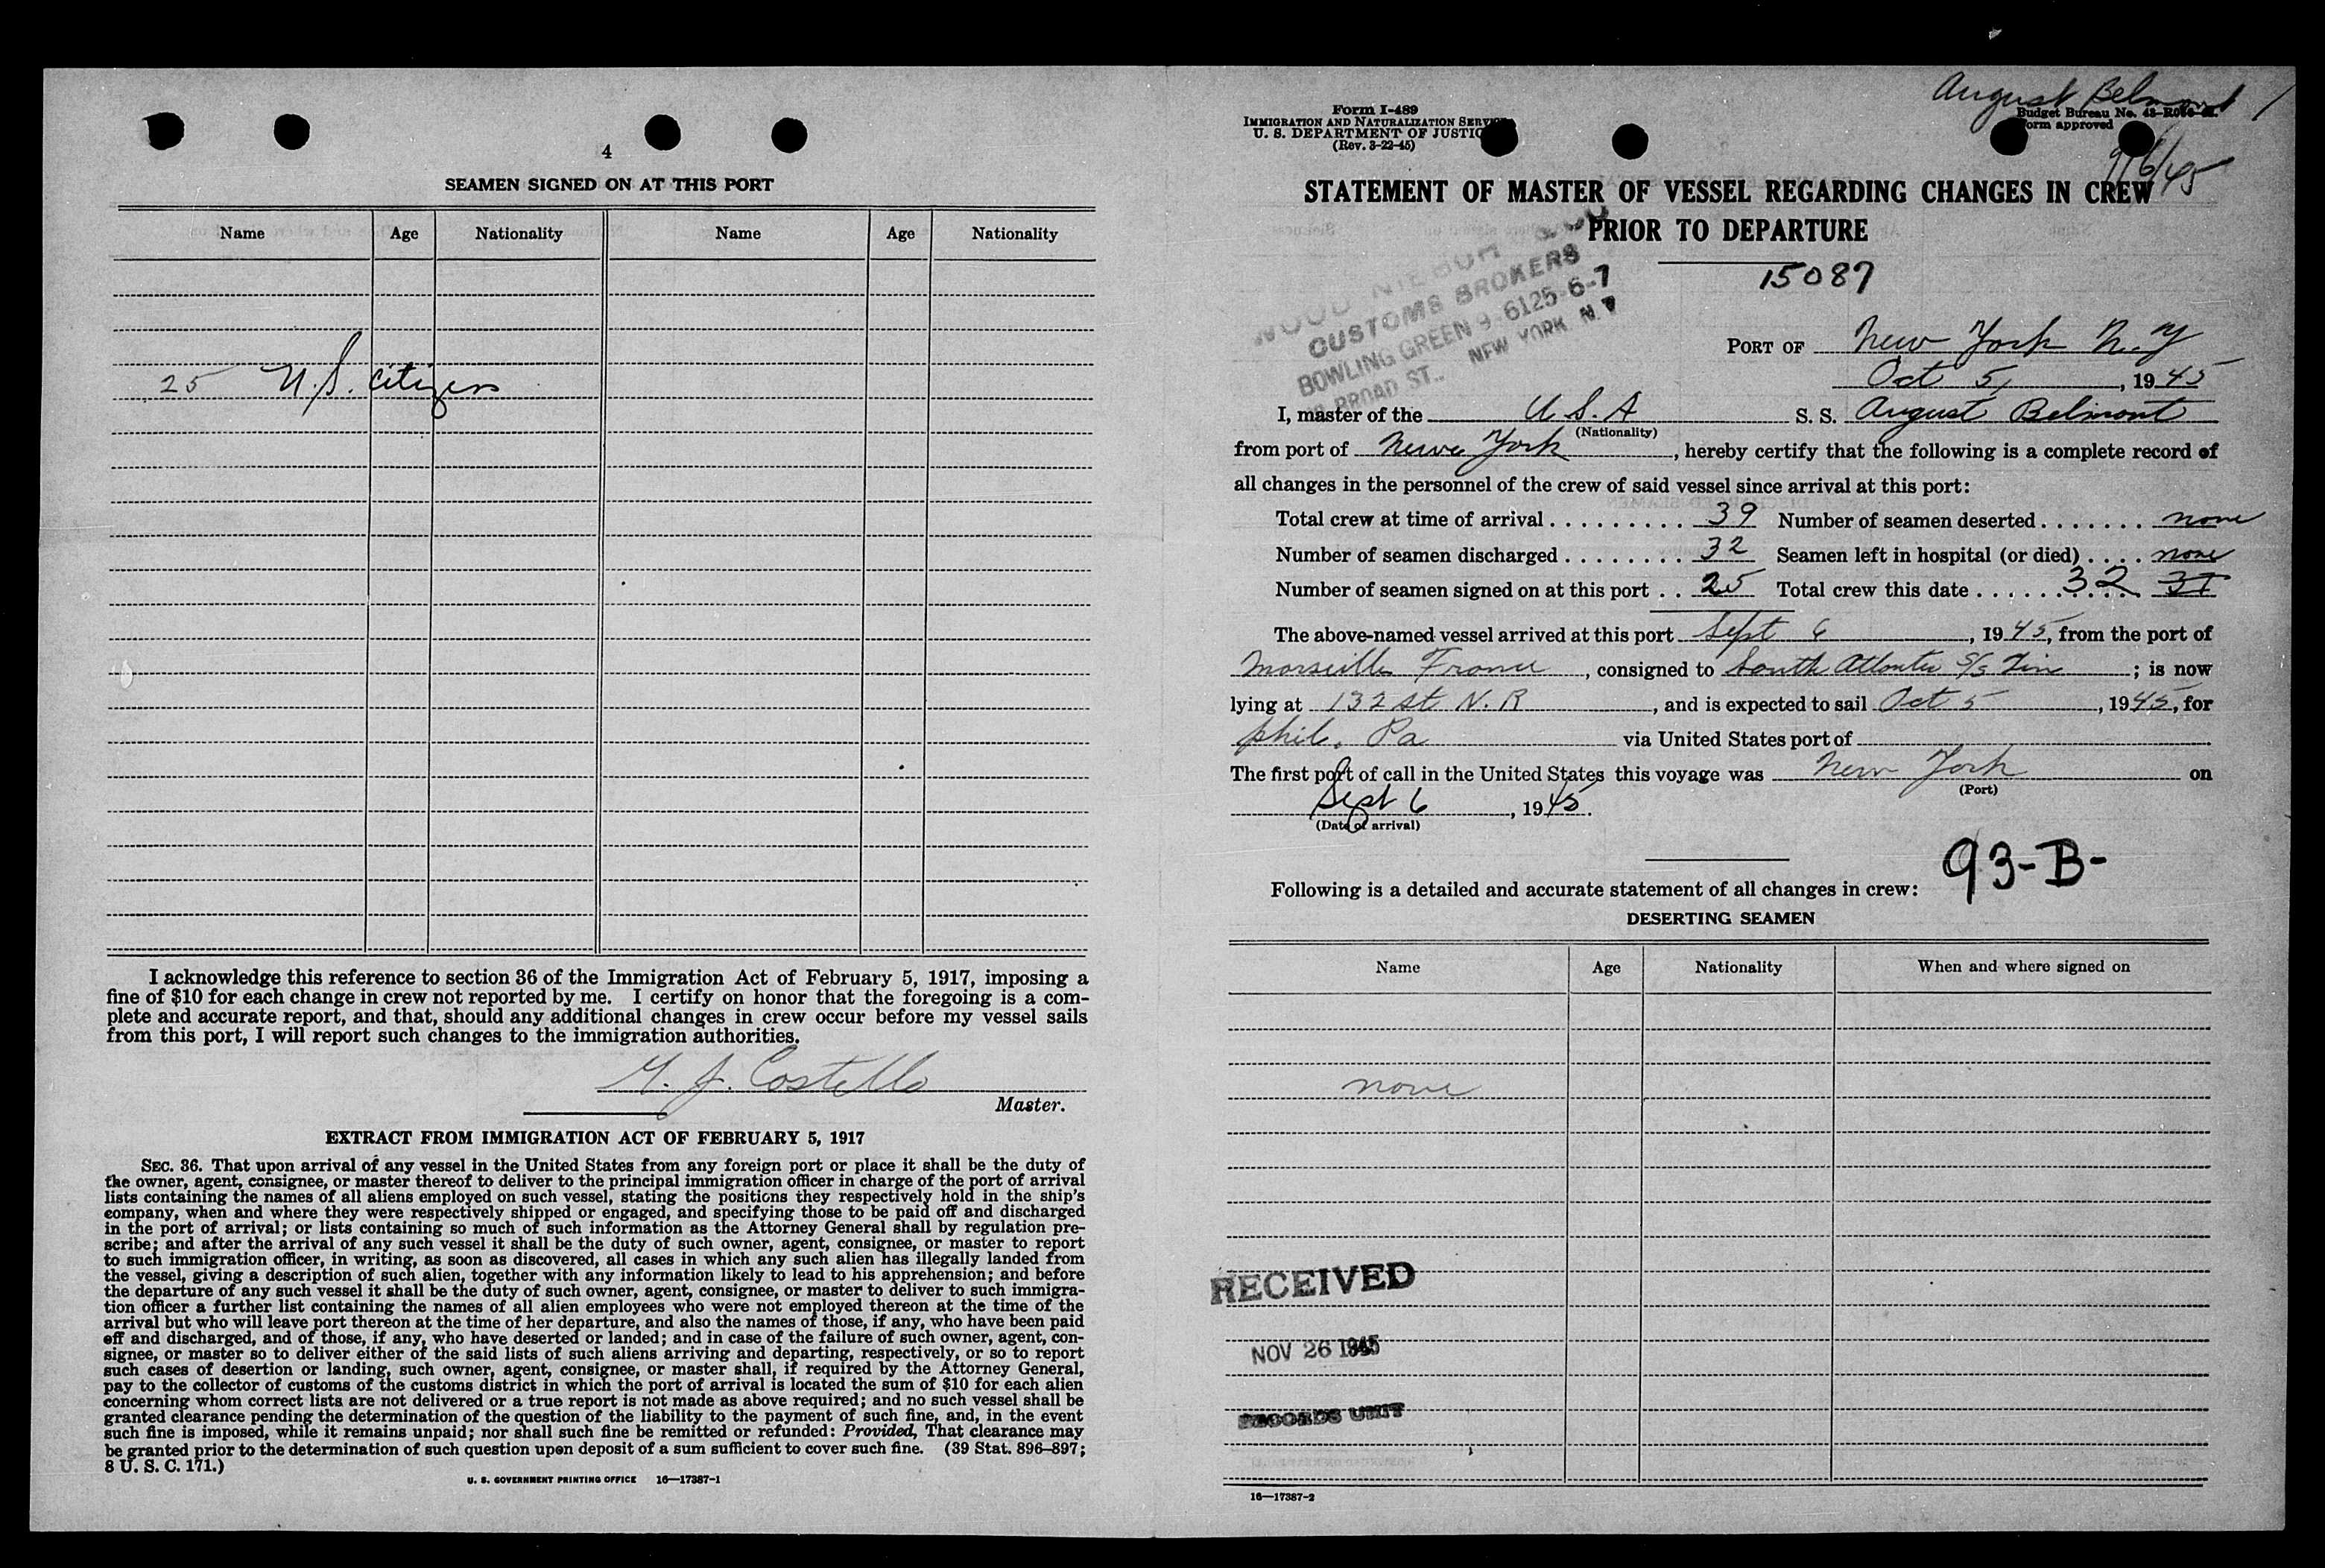 4
SEAMEN SIGNED ON AT THIS PORT
Name Age Nationality Name Age Nationality
25 U.S. Citizens
I acknowledge this reference to section 36 of the Immigration Act of February 5, 1917, imposing a
fine of $10 for each change in crew not reported by me. I certify on honor that the foregoing is a com-
plete and accurate report, and that, should any additional changes in crew occur before my vessel sails
from this port, I will report such changes to the immigration authorities.
J. Costello
Master.
EXTRACT FROM IMMIGRATION ACT OF FEBRUARY 5, 1917
SEC. 36. That upon arrival of any vessel in the United States from any foreign port or place it shall be the duty of
the owner, agent, consignee, or master thereof to deliver to the principal immigration officer in charge of the port of arrival
lists containing the names of all aliens employed on such vessel, stating the positions they respectively hold in the ship's
company, when and where they were respectively shipped or engaged, and specifying those to be paid off and discharged
in the port of arrival; or lists containing so much of such information as the Attorney General shall by regulation pre-
scribe; and after the arrival of any such vessel it shall be the duty of such owner, agent, consignee, or master to report
to such immigration officer, in writing, as soon as discovered, all cases in which any such alien has illegally landed from
the vessel, giving a description of such alien, together with any information likely to lead to his apprehension; and before
the departure of any such vessel it shall be the duty of such owner, agent, consignee, or master to deliver to such immigra-
tion officer a further list containing the names of all alien employees who were not employed thereon at the time of the
arrival but who will leave port thereon at the time of her departure, and also the names of those, if any, who have been paid
off and discharged, and of those, if any, who have deserted or landed; and in case of the failure of such owner, agent, con-
signee, or master so to deliver either of the said lists of such aliens arriving and departing, respectively, or so to report
such cases of desertion or landing, such owner, agent, consignee, or master shall, if required by the Attorney General,
pay to the collector of customs of the customs district in which the port of arrival is located the sum of $10 for each alien
concerning whom correct lists are not delivered or a true report is not made as above required; and no such vessel shall be
granted clearance pending the determination of the question of the liability to the payment of such fine, and, in the event
such fine is imposed, while it remains unpaid; nor shall such fine be remitted or refunded: Provided, That clearance may
be granted prior to the determination of such question upon deposit of a sum sufficient to cover such fine. (39 Stat. 896–897;
8 U. S. C. 171.)
U. S. GOVERNMENT PRINTING OFFICE 16—17387-1
August Belmont
Form I-489
IMMIGRATION AND NATURALIZATION SERVICE
U. S. DEPARTMENT OF JUSTICE
(Rev. 3-22-45)
Budget Bureau No.
Form approved
9/6/45
STATEMENT OF MASTER OF VESSEL REGARDING CHANGES IN CREW
PRIOR TO DEPARTURE
15087
CUSTOMS BROKERS
BOWLING GREEN 9-6125-6-7
BROAD ST., NEW YORK N.Y
PORT OF New York N.Y
Oct 5, , 1945
I, master of the U.S.A S. S. August Belmont
(Nationality)
from port of New York , hereby certify that the following is a complete record of
all changes in the personnel of the crew of said vessel since arrival at this port:
Total crew at time of arrival . . . . . . . . . 39 Number of seamen deserted . . . . . . . none
Number of seamen discharged . . . . . . . . 32 Seamen left in hospital (or died) . . . . none
Number of seamen signed on at this port . . 25 Total crew this date . . . . . . . . . . . 32 31
The above-named vessel arrived at this port Sept 6 , 1945, from the port of
Marseille France , consigned to South Atlantic S/S Line ; is now
lying at 132 st N. R , and is expected to sail Oct 5 , 1945, for
phil. Pa via United States port of
The first port of call in the United States this voyage was New York on
(Port)
Sept 6 , 1945.
(Date of arrival)
93-B-
Following is a detailed and accurate statement of all changes in crew:
DESERTING SEAMEN
Name Age Nationality When and where signed on
none
RECEIVED
NOV 26 1945
RECORDS UNIT
16—17387-2